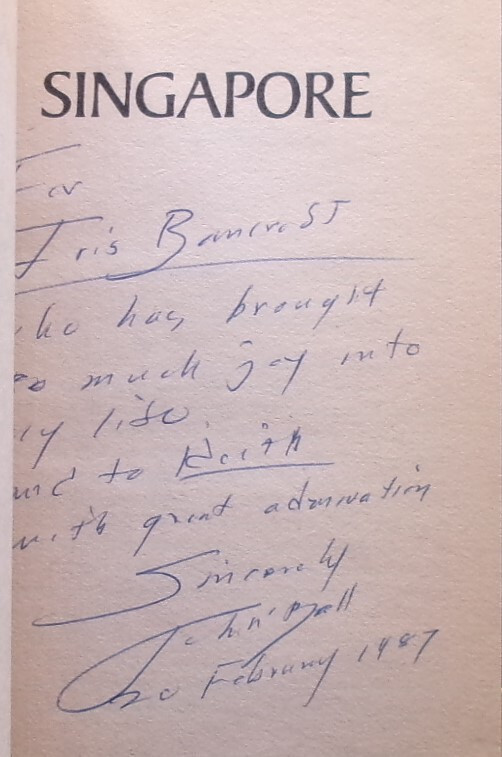 SINGAPORE
For
Iris Bancroft
who has brought
so much joy into
my life
and to Keith
with great admiration
Sincerely
John Ball
20 February 1987